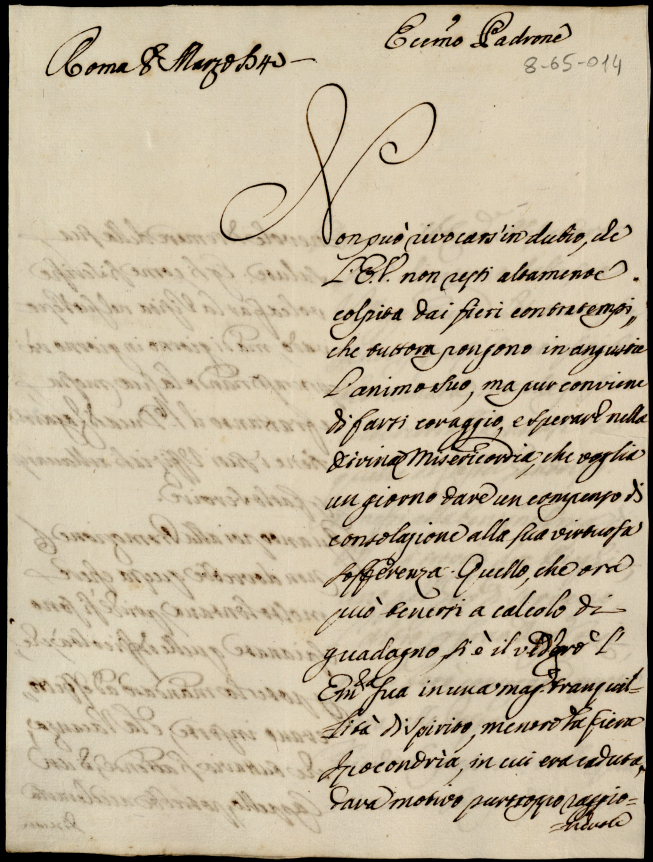 Eccmo Padrone
Roma 8 Marzo
8-65-014
Non può rivocarsi in dubio, che
L'E.V. non resti altamente
colpita dai fieri contratempi,
che tuttora pongono in angustia
L'animo suo, ma pur conviene
di farsi coraggio, e sperare nella
divina Misericordia, che voglia
un giorno dare un compenso di
consolazione alla sua virtuosa
sofferenza. Quello, che ora
può tenersi a calcolo di
guadagno si è il vedere L'
Emza sua in una magr tranquil-
lità di spirito, mentre la fiera
Ipocondria, in cui era caduta,
dava motivo purtroppo raggio-
=nevole